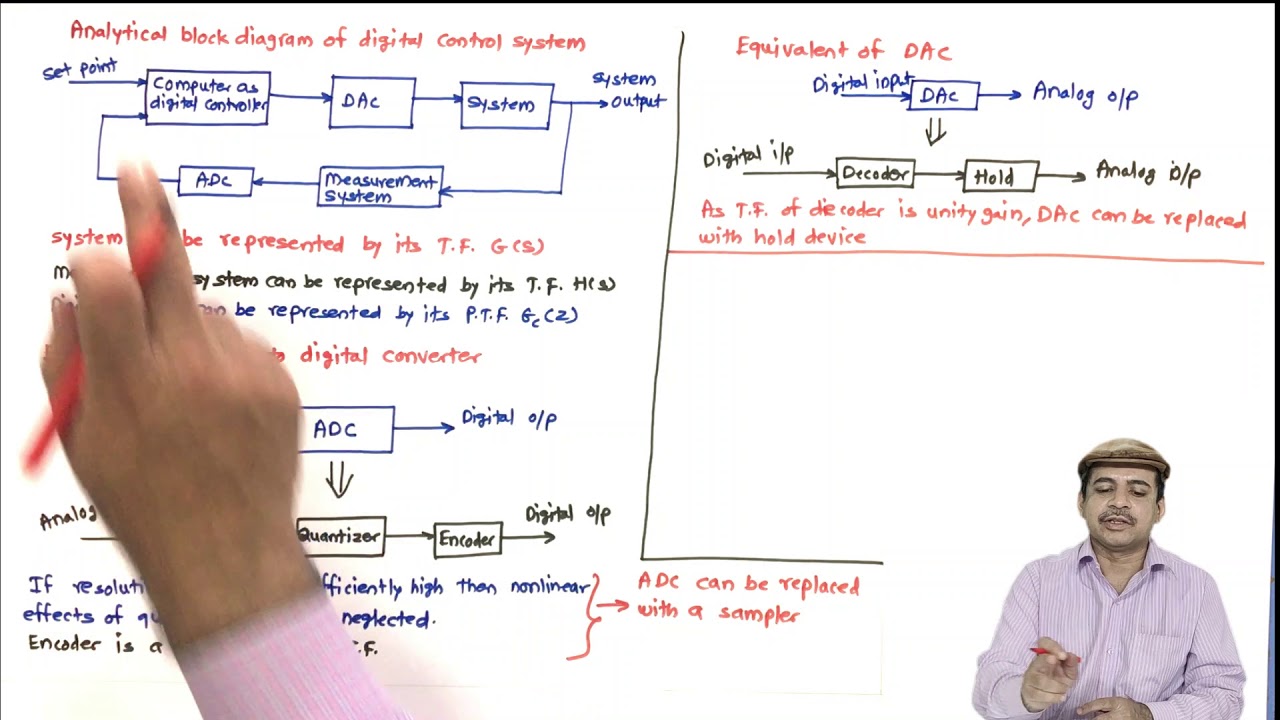 Analytical block diagram of digital control system
set point
Computer as
digital controller
DAC
System
system
output
ADC
measurement
system
system be represented by its T.F. G(s)
system can be represented by its T.F. H(s)
be represented by its P.T.F. Gc(z)
digital converter
ADC
Digital o/p
Analog
Quantizer
Encoder
Digital o/p
If then nonlinear
effects of neglected.
Encoder is a T.F.
ADC can be replaced
with a sampler
Equivalent of DAC
Digital input
DAC
Analog o/p
Digital i/p
Decoder
Hold
Analog o/p
As T.F. of decoder is unity gain, DAC can be replaced
with hold device